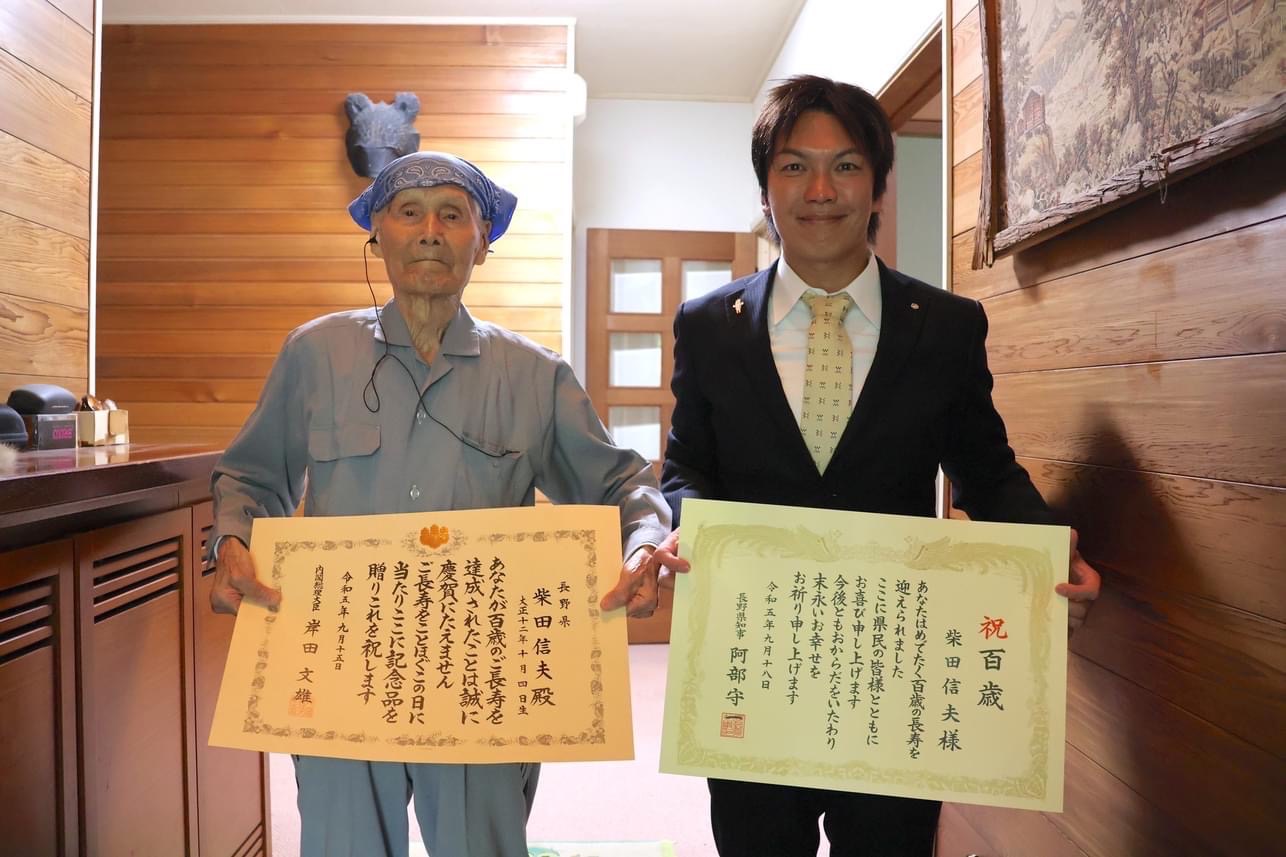 長野県
柴田信夫殿
大正十二年十月四日生
あなたが百歳のご長寿を
達成されたことは誠に
慶賀にたえません
ご長寿をことほぐこの日に
当たりここに記念品を
贈りこれを祝します
令和五年九月十五日
内閣総理大臣 岸田文雄
祝百歳
柴田信夫様
あなたはめでたく百歳の長寿を
迎えられました
ここに県民の皆様とともに
お喜び申し上げます
今後ともおからだをいたわり
末永いお幸せを
お祈り申し上げます
令和五年九月十八日
長野県知事 阿部守一